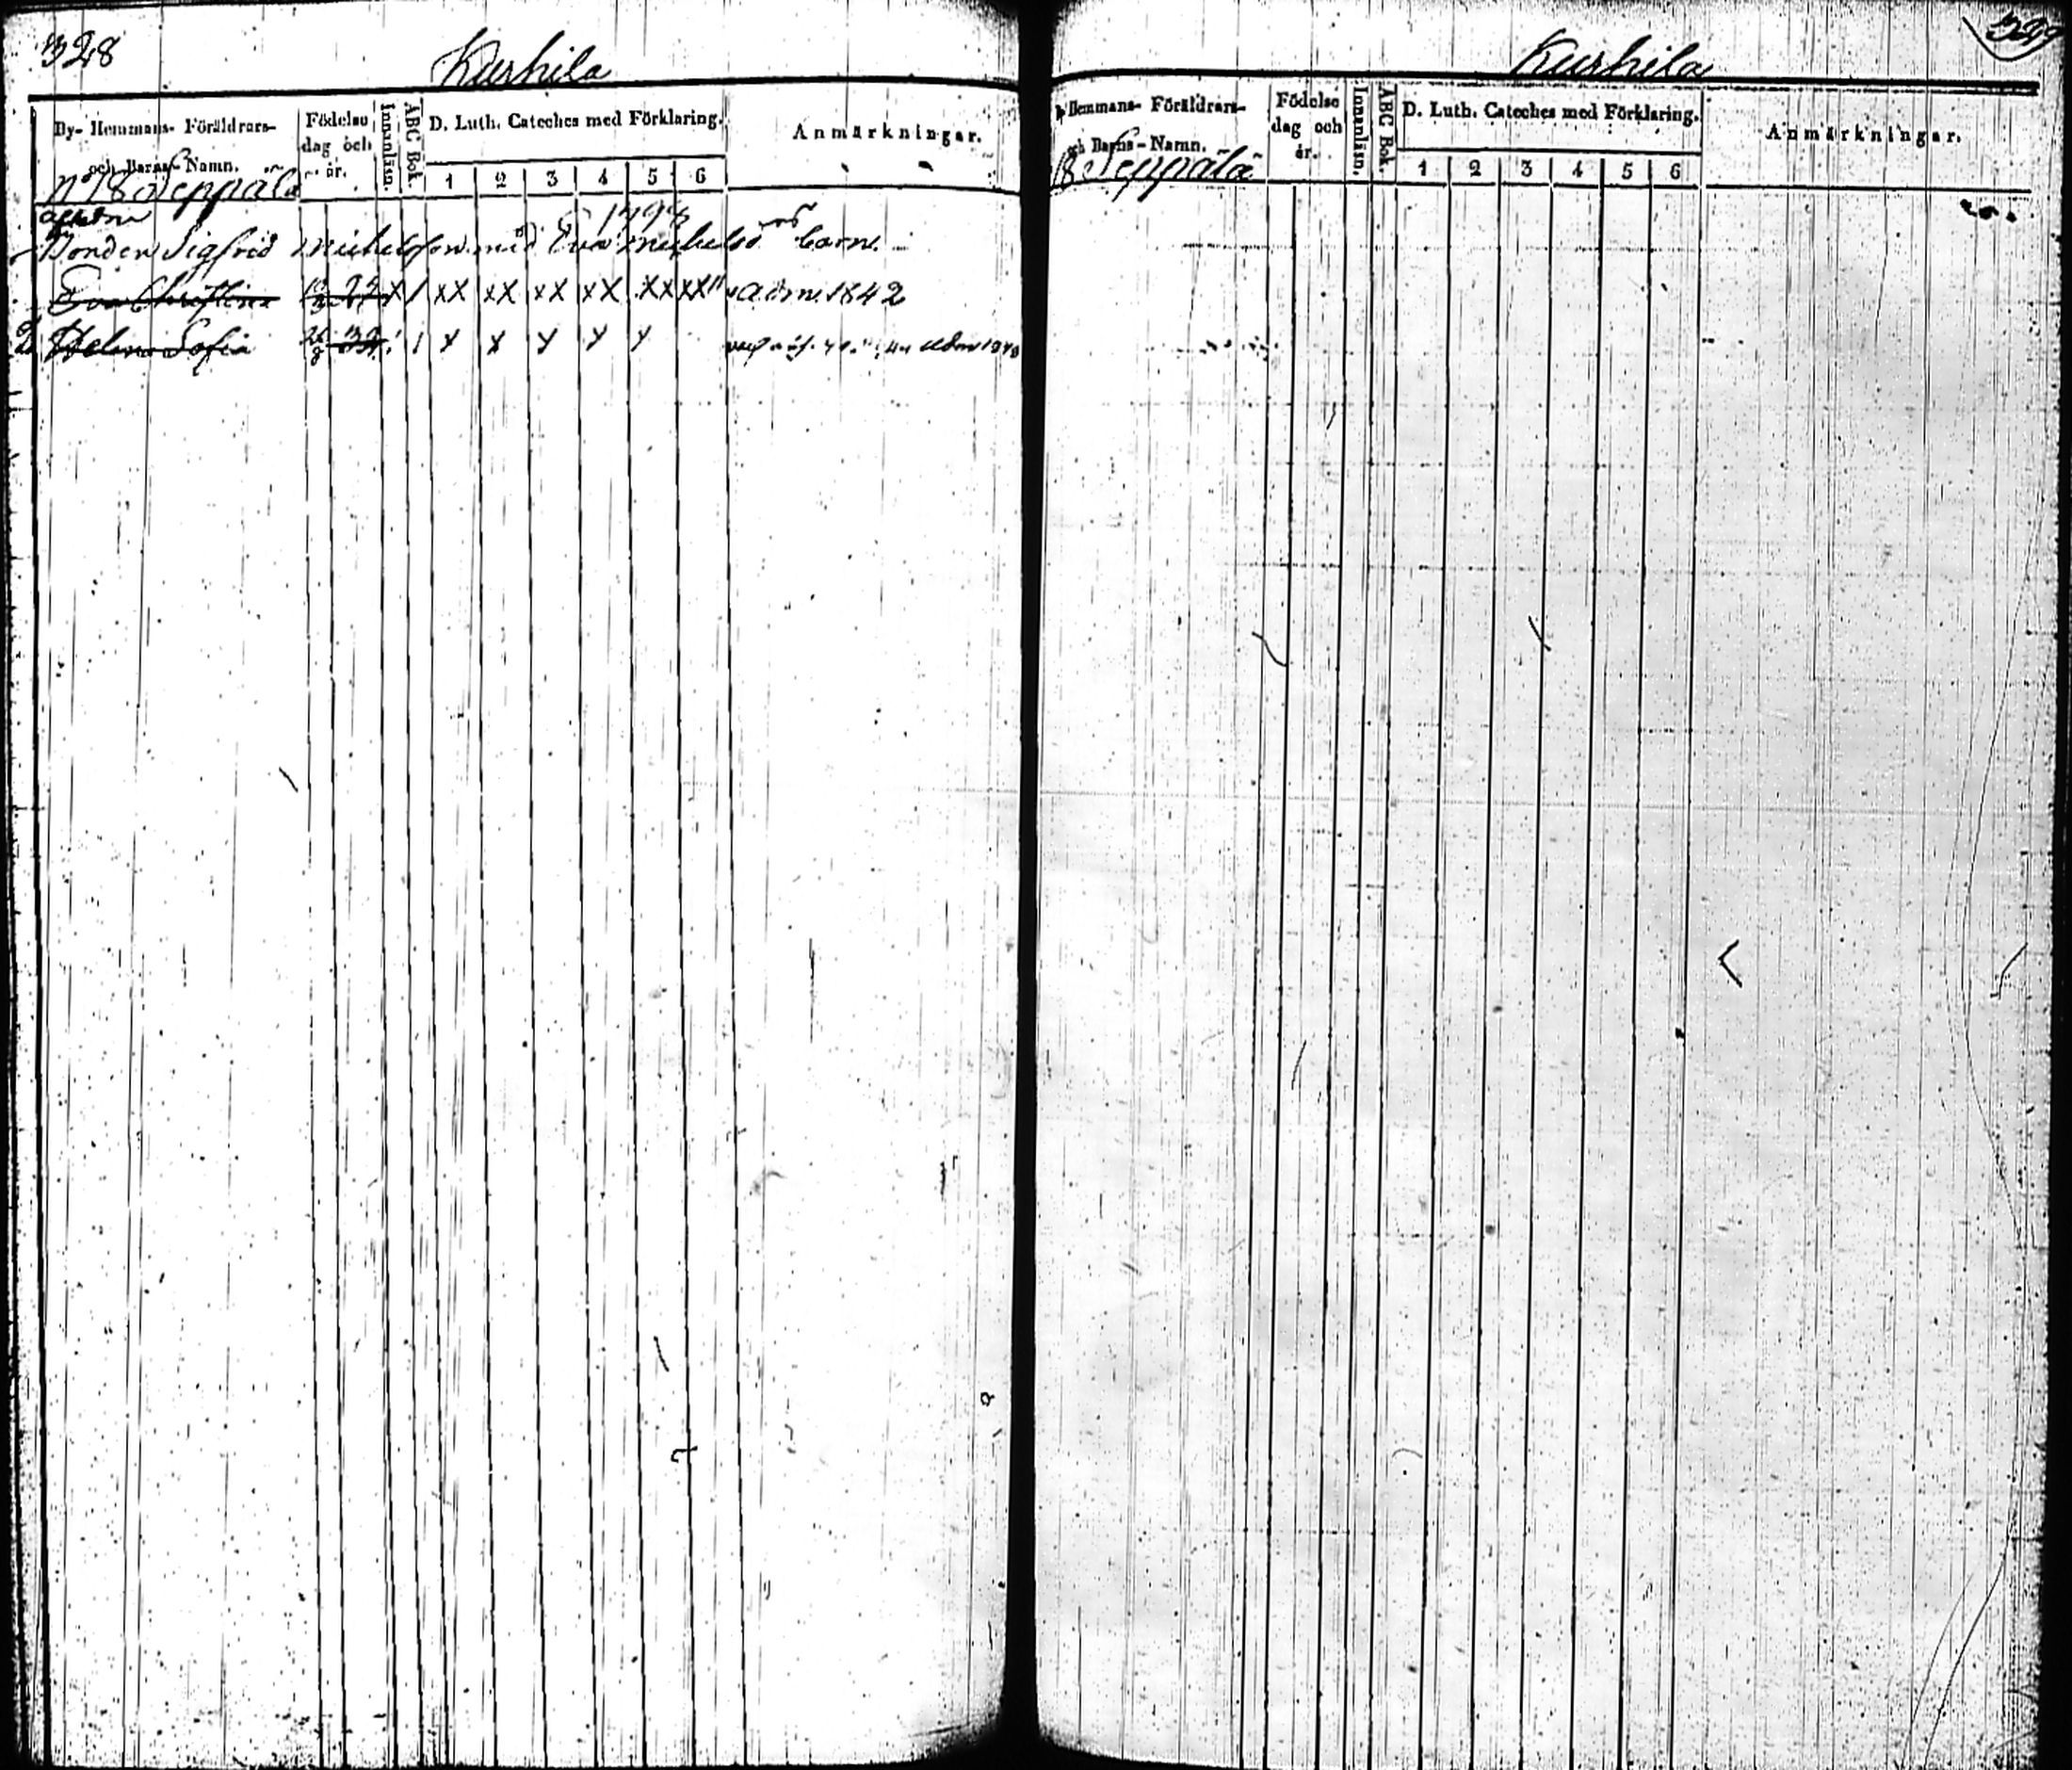 328
Kurhila
By- Hemmans- Föräldrars-
och Barns- Namn.
Födelse
dag och
år.
Innanläsn.
ABC Bok.
D. Luth. Cateches med Förklaring.
1 2 3 4 5 6
Anmärkningar.
N 18 Seppälä
1794
Bonden Sigfrid Michelsson med Eva Michelsd barn.
Eva Christina 22 X / XX XX XX XX XX XX" adm. 1842
Helena Sofia 26/8 32 / / Y Y Y Y Y
329
Kurhila
Hemmans- Föräldrars-
och Barns- Namn.
Födelse
dag och
år.
Innanläsn.
ABC Bok.
D. Luth. Cateches med Förklaring.
1 2 3 4 5 6
Anmärkningar.
18 Seppälä